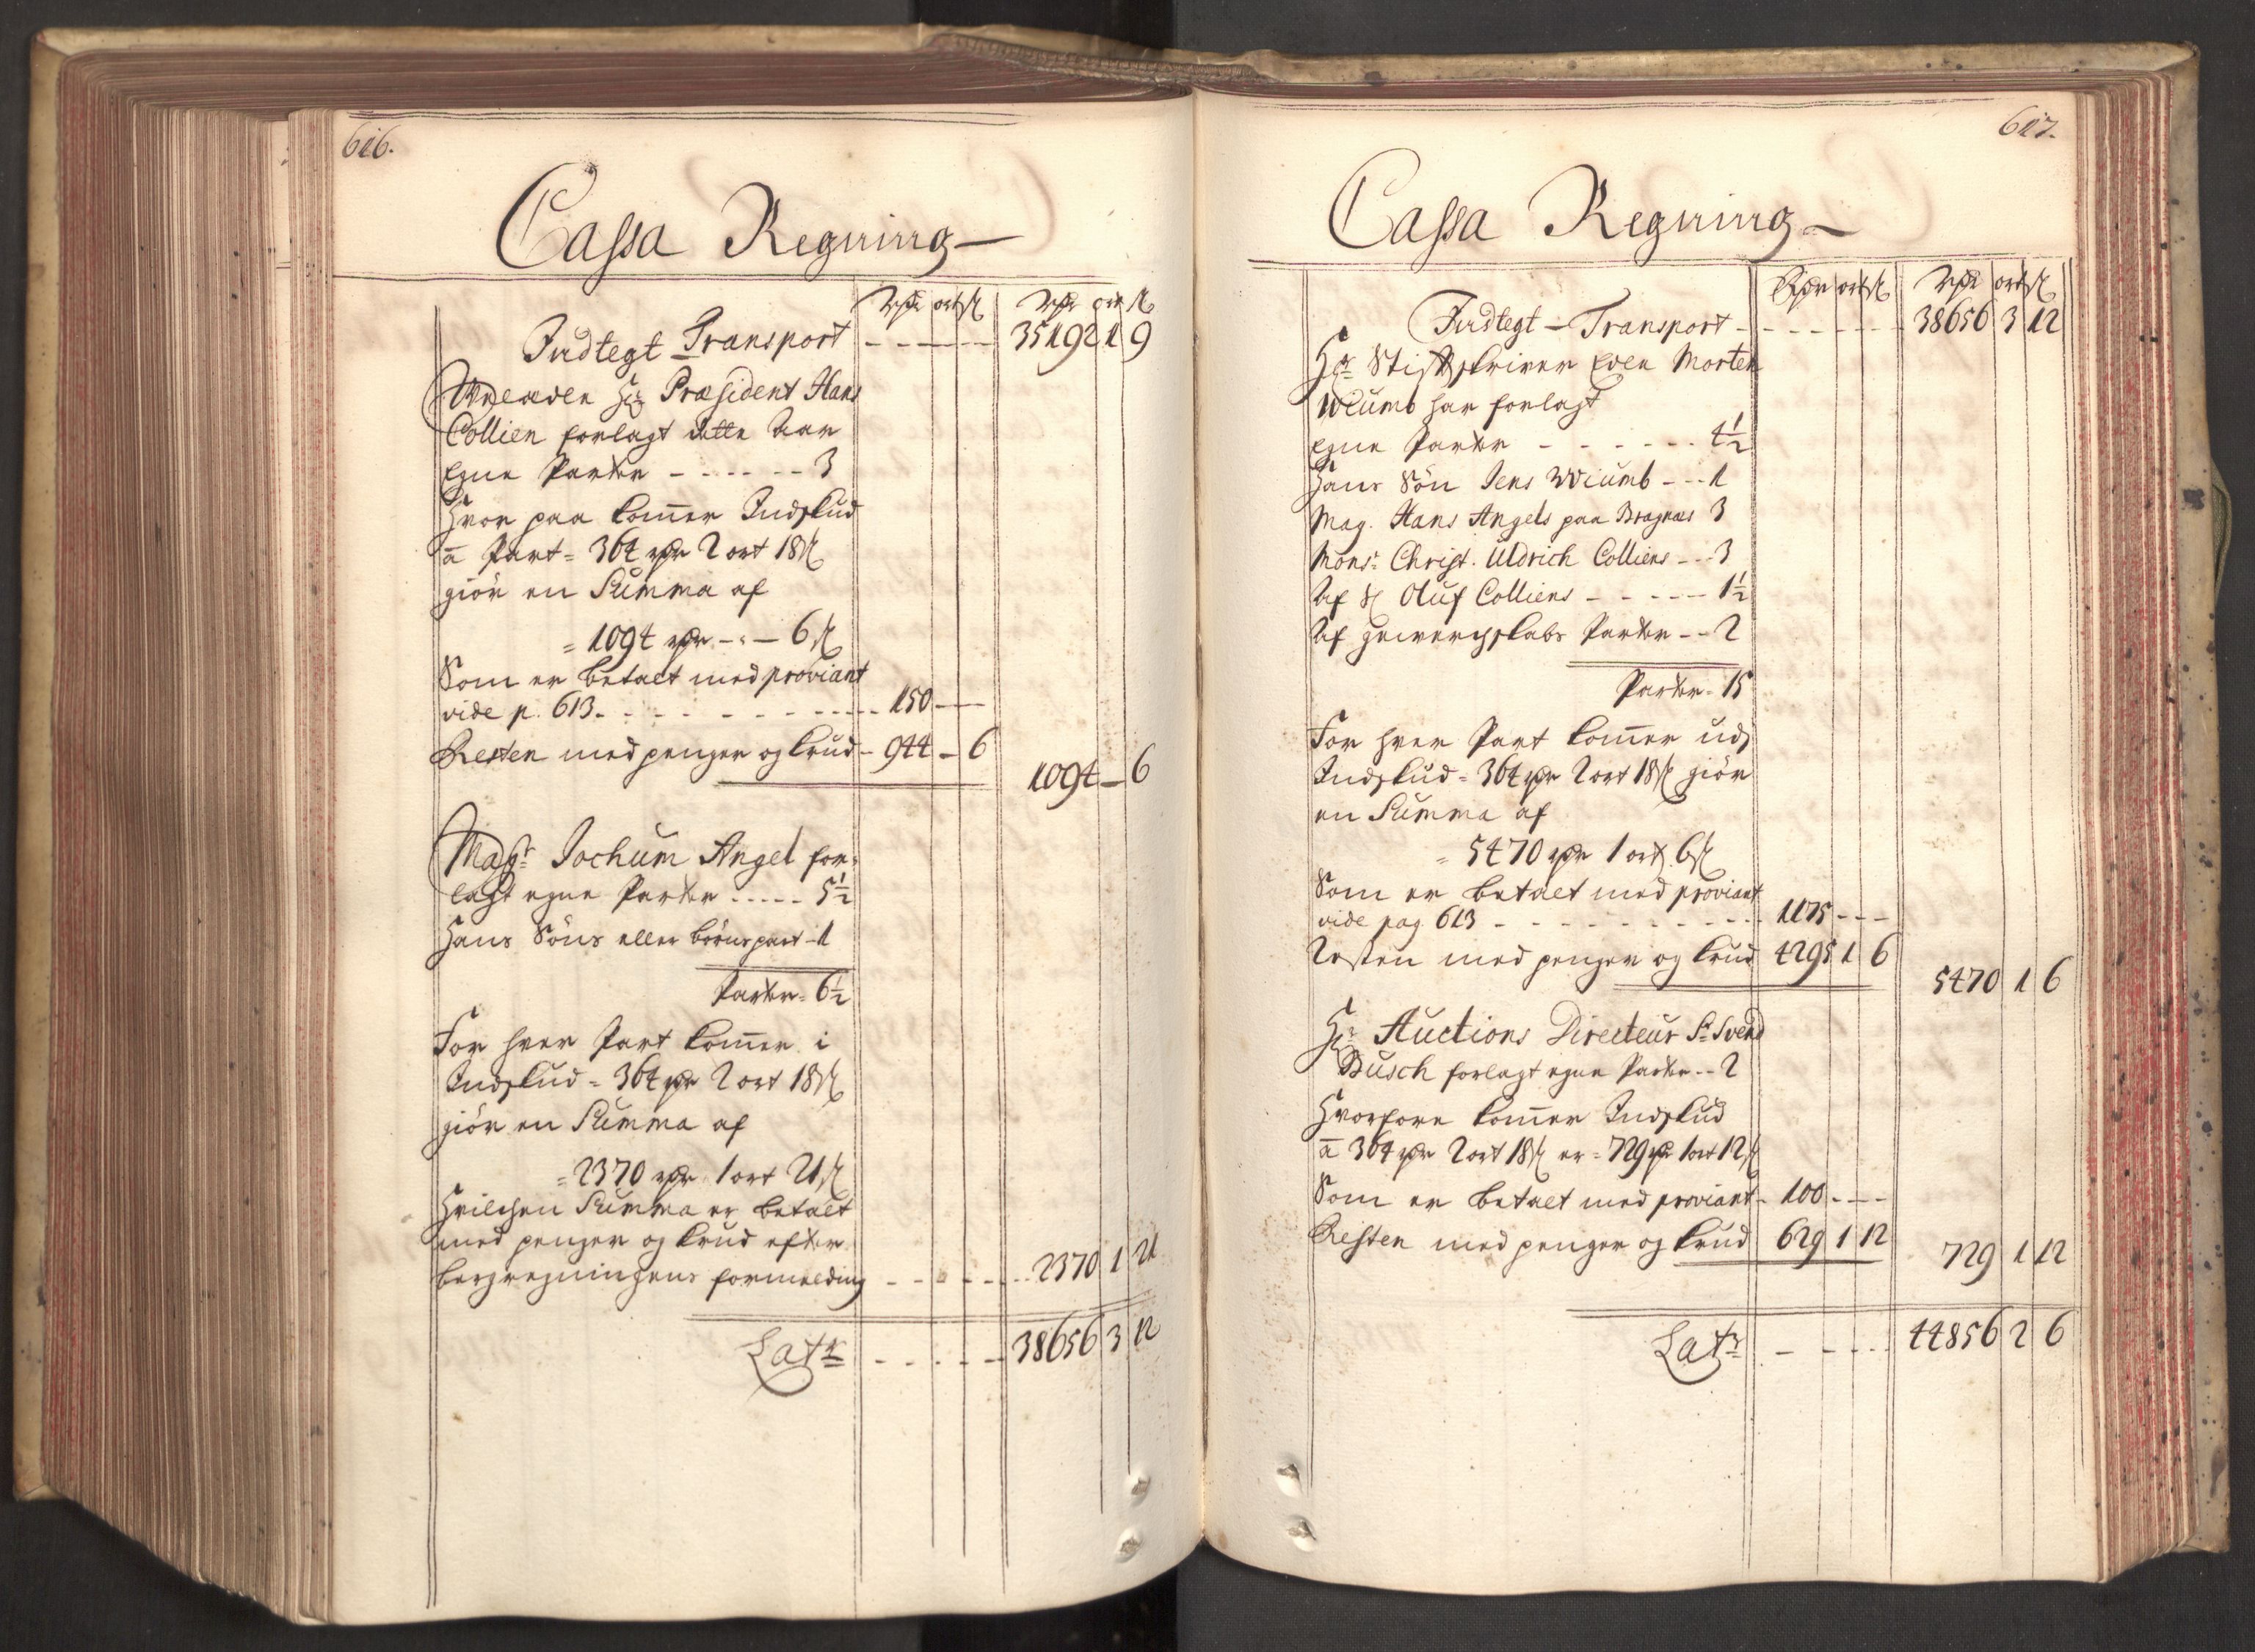 616.
Cassa Regning
rdr ort ß rdr ort ß
Indtegt Transport - - - - - 35192 1 9
Hr Præsident Hans
Collien forlagt dette Aar
Egne Parter - - - - - - 3
Hvor paa komer Indskud
ā Part = 364 rdr 2 ort 18 ß
giör en Summa af
= 1094 rdr - " - 6 ß
Som er betalt med proviant
vide p. 613. - - - - - - - - - - 150 - -
Resten med penger og krud - 944 - 6
1094 - 6
Magr Jochum Angel for-
lagt egne Parter - - - - - 5½
Hans Söns eller börns part - 1
Parter = 6½
For hver Part komer i
Indskud = 364 rdr 2 ort 18 ß
giör en Summa af
= 2370 rdr 1 ort 21 ß
Hvilchen Summa er betalt
med penger og krud efter
bergregningens formelding - - - - - 2370 1 21
Latr - - - - - 38656 3 12
617.
Cassa Regning
Rdr ort ß rdr ort ß
Indtegt - Transport - - - - - - 38656 3 12
Hr Stiftskriver Even Morten
Wiumb har forlagt
egne Parter - - - - - - 4½
Hans Sön Jens Wiumb - - - 1
Mag. Hans Angels paa Bragnæs 3
Monsr Christ. Uldrich Colliens - - - 3
Af Sl Oluf Colliens - - - - - 1½
Af gewerchskabs Parter - - 2
Parter = 15
For hver Part komer udj
Indskud = 364 rdr 2 ort 18 ß giör
en Summa af
= 5470 rdr 1 ort 6 ß
Som er betalt med proviant
vide pag 613 - - - - - - - - - - 1175 - - -
Resten med penger og krud 4295 1 6
5470 1 6
Hr Auctions Directeur Sr Svend
Busch forlagt egne Parter - - 2
Hvorfore komer Indskud
ā 364 rdr 2 ort 18 ß er = 729 rdr 1 ort 12 ß
Som er betalt med proviant - 100 - - -
Resten med penger og krud 629 1 12
729 1 12
Latr - - - - 44856 2 6